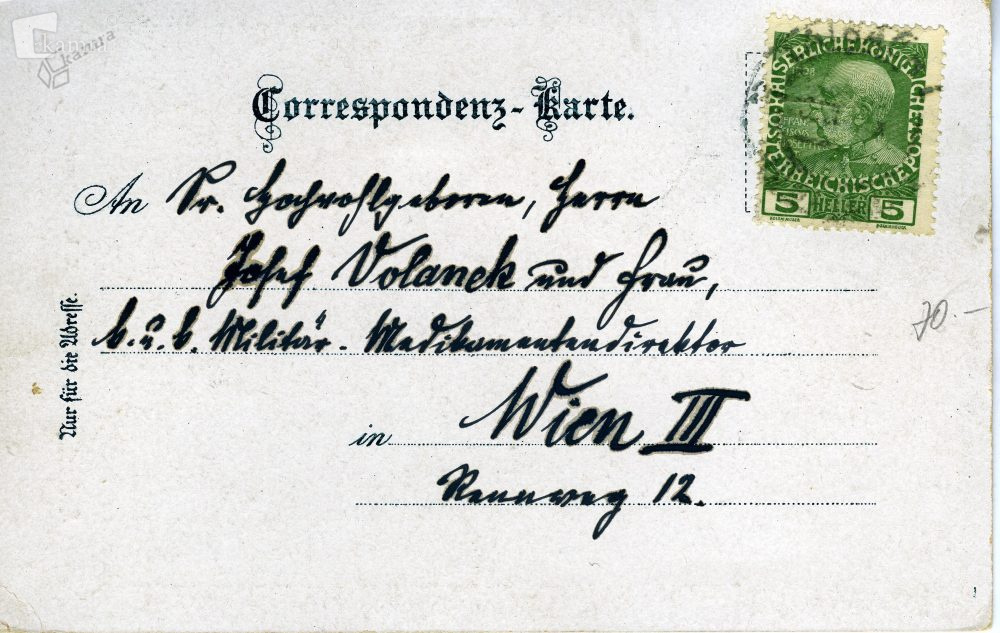 kamra
kamra
Correspondenz-Karte.
KAISERLICHE KÖNIGLICHE POST
OESTERREICHISCHE
5 HELLER 5
An Sr. Hochwohlgeboren, Herrn
Josef Volanek und Frau,
k. u. k. Militär-Medikamentendirektor
in Wien III
Rennweg 12.
Nur für die Adresse.
70.-